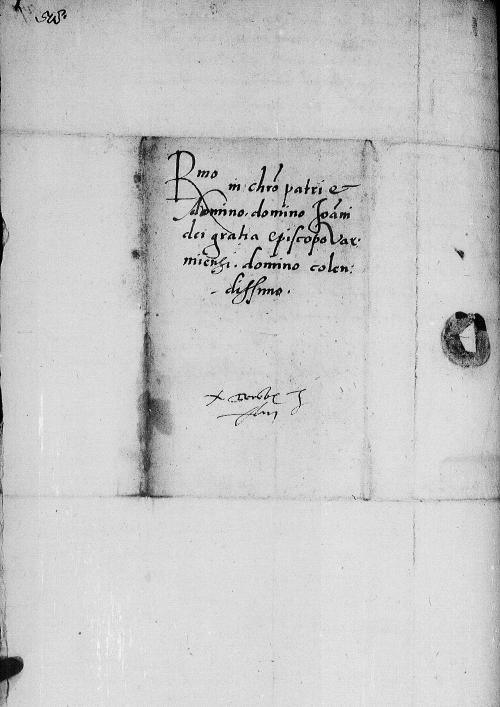 Rmo in chro patri et
domino. domino Joani
dei gratia episcopo Var:
miensi. domino colen:
dissimo.